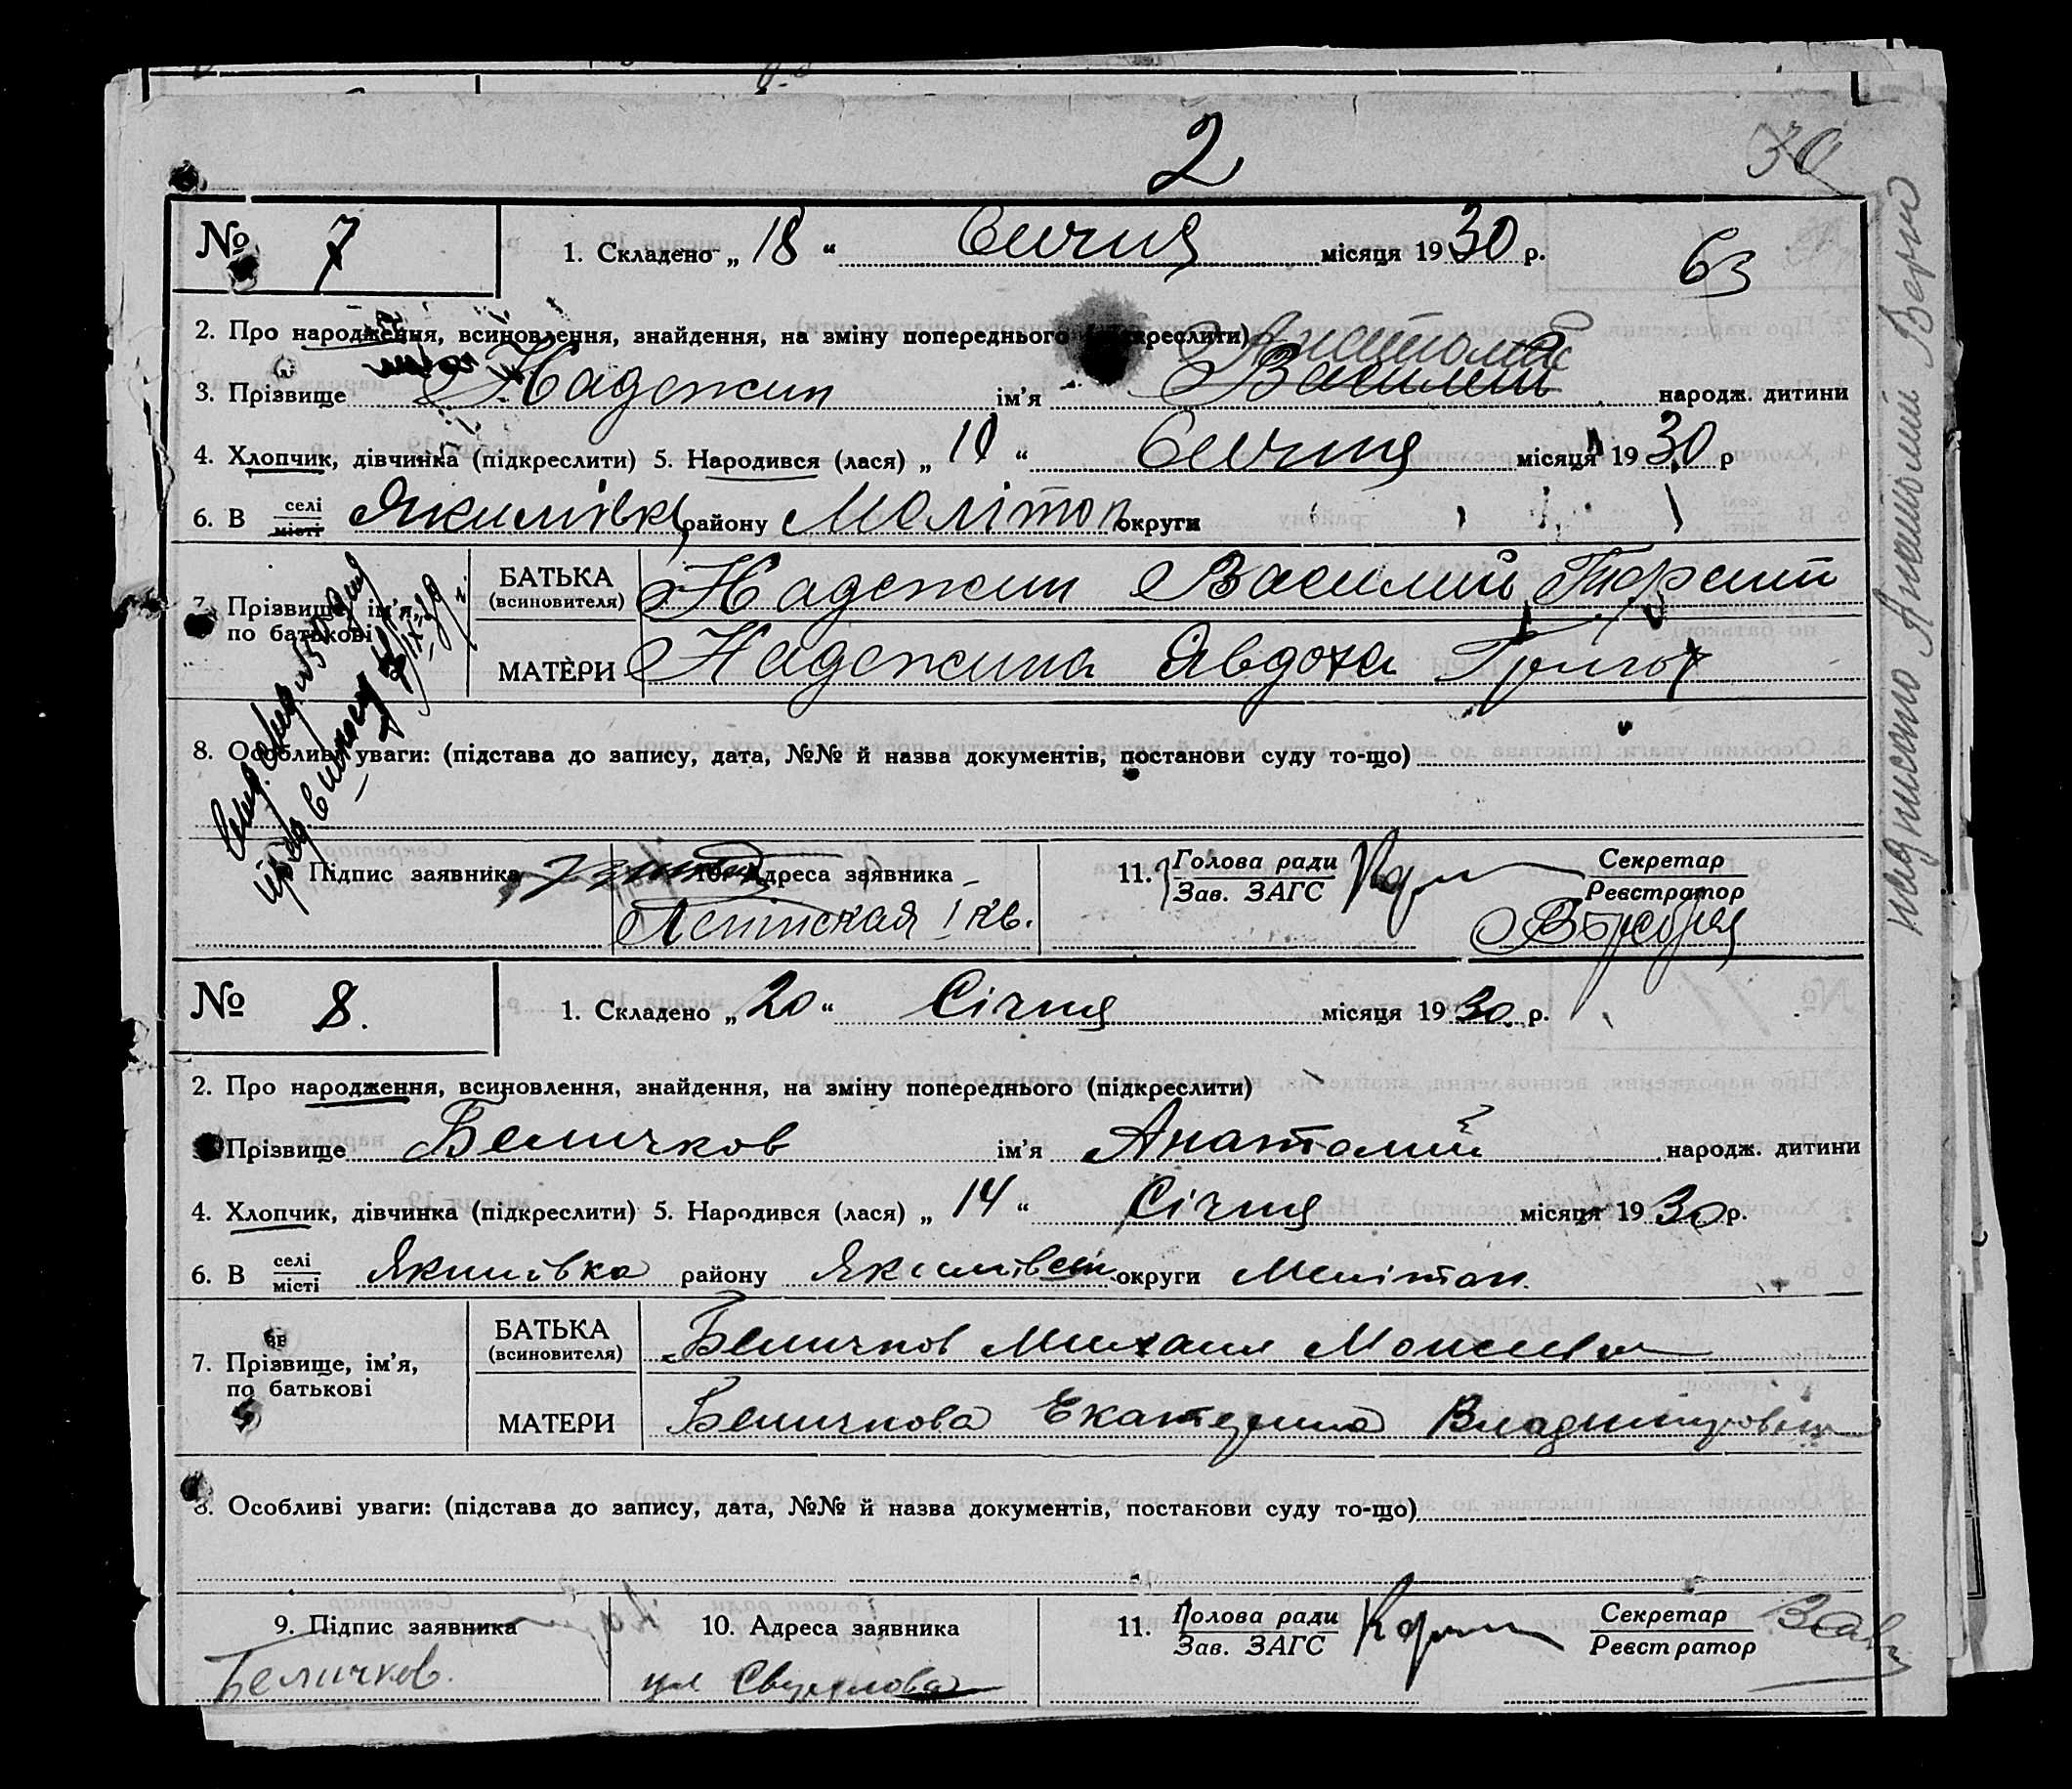 2
30
№ 7
1. Складено „ 18 “ Сичня місяця 19 30 р.
63
2. Про народження, всиновлення, знайдення, на зміну попереднього (підкреслити)
Анатолій
3. Прізвище Надежин ім'я Василий народж. дитини
4. Хлопчик, дівчинка (підкреслити) 5. Народився (лася) „ 10 “ Сичня місяця 19 30 р
6. В селі місті Якимівка району Меліт оп округи
7. Прізвище, ім'я, по батькові
БАТЬКА (всиновителя) Надежин Василий
МАТЕРИ Надежина Явдоха Григор
8. Особливі уваги: (підстава до запису, дата, №№ й назва документів, постанови суду то-що)
Підпис заявника
10. Адреса заявника
Ленінская 1 кв.
11. Голова ради
Зав. ЗАГС
Секретар
Реєстратор
надписано Анатолій Верно
№ 8.
1. Складено „ 20 “ Січня місяця 19 30 р.
2. Про народження, всиновлення, знайдення, на зміну попереднього (підкреслити)
Прізвище Беличков ім'я Анатолий народж. дитини
4. Хлопчик, дівчинка (підкреслити) 5. Народився (лася) „ 14 “ Січня місяця 19 30 р.
6. В селі місті Якимівка району Якимівськ округи Мелітоп.
7. Прізвище, ім'я, по батькові
БАТЬКА (всиновителя) Беличков Михаил Моисеев
МАТЕРИ Беличкова Екатерина Владимировна
8. Особливі уваги: (підстава до запису, дата, №№ й назва документів, постанови суду то-що)
9. Підпис заявника
Беличков.
10. Адреса заявника
ул Свердлова
11. Голова ради
Зав. ЗАГС
Секретар
Реєстратор